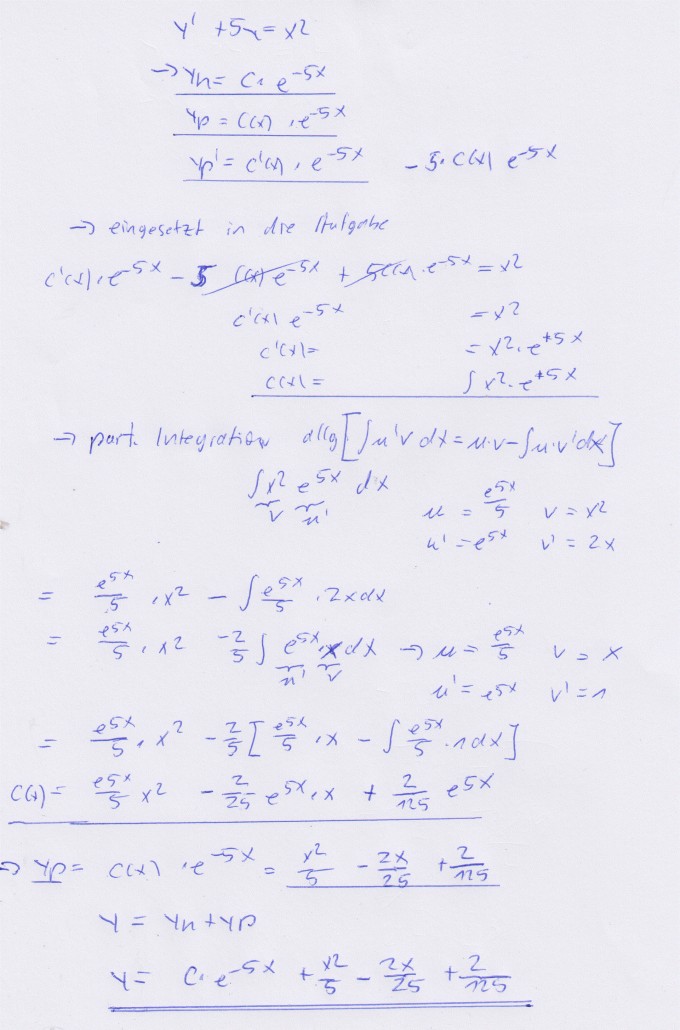 y' + 5y = x²
→ yh = C · e^-5x
yp = C(x) · e^-5x
yp' = C'(x) · e^-5x - 5 · C(x) e^-5x
→ eingesetzt in die Aufgabe
C'(x) · e^-5x - 5 C(x) e^-5x + 5 C(x) · e^-5x = x²
C'(x) e^-5x = x²
C'(x) = = x² · e^+5x
C(x) = ∫ x² · e^+5x
→ part. Integration allg [∫ u'v dx = u·v - ∫ u·v' dx]
∫ x² e^5x dx u = e^5x/5 v = x²
v u' u' = e^5x v' = 2x
= e^5x/5 · x² - ∫ e^5x/5 · 2x dx
= e^5x/5 · x² - 2/5 ∫ e^5x · x dx → u = e^5x/5 v = x
u' v u' = e^5x v' = 1
= e^5x/5 · x² - 2/5 [e^5x/5 · x - ∫ e^5x/5 · 1 dx]
C(x) = e^5x/5 x² - 2/25 e^5x · x + 2/125 e^5x
→ yp = C(x) · e^-5x = x²/5 - 2x/25 + 2/125
y = yh + yp
y = C · e^-5x + x²/5 - 2x/25 + 2/125